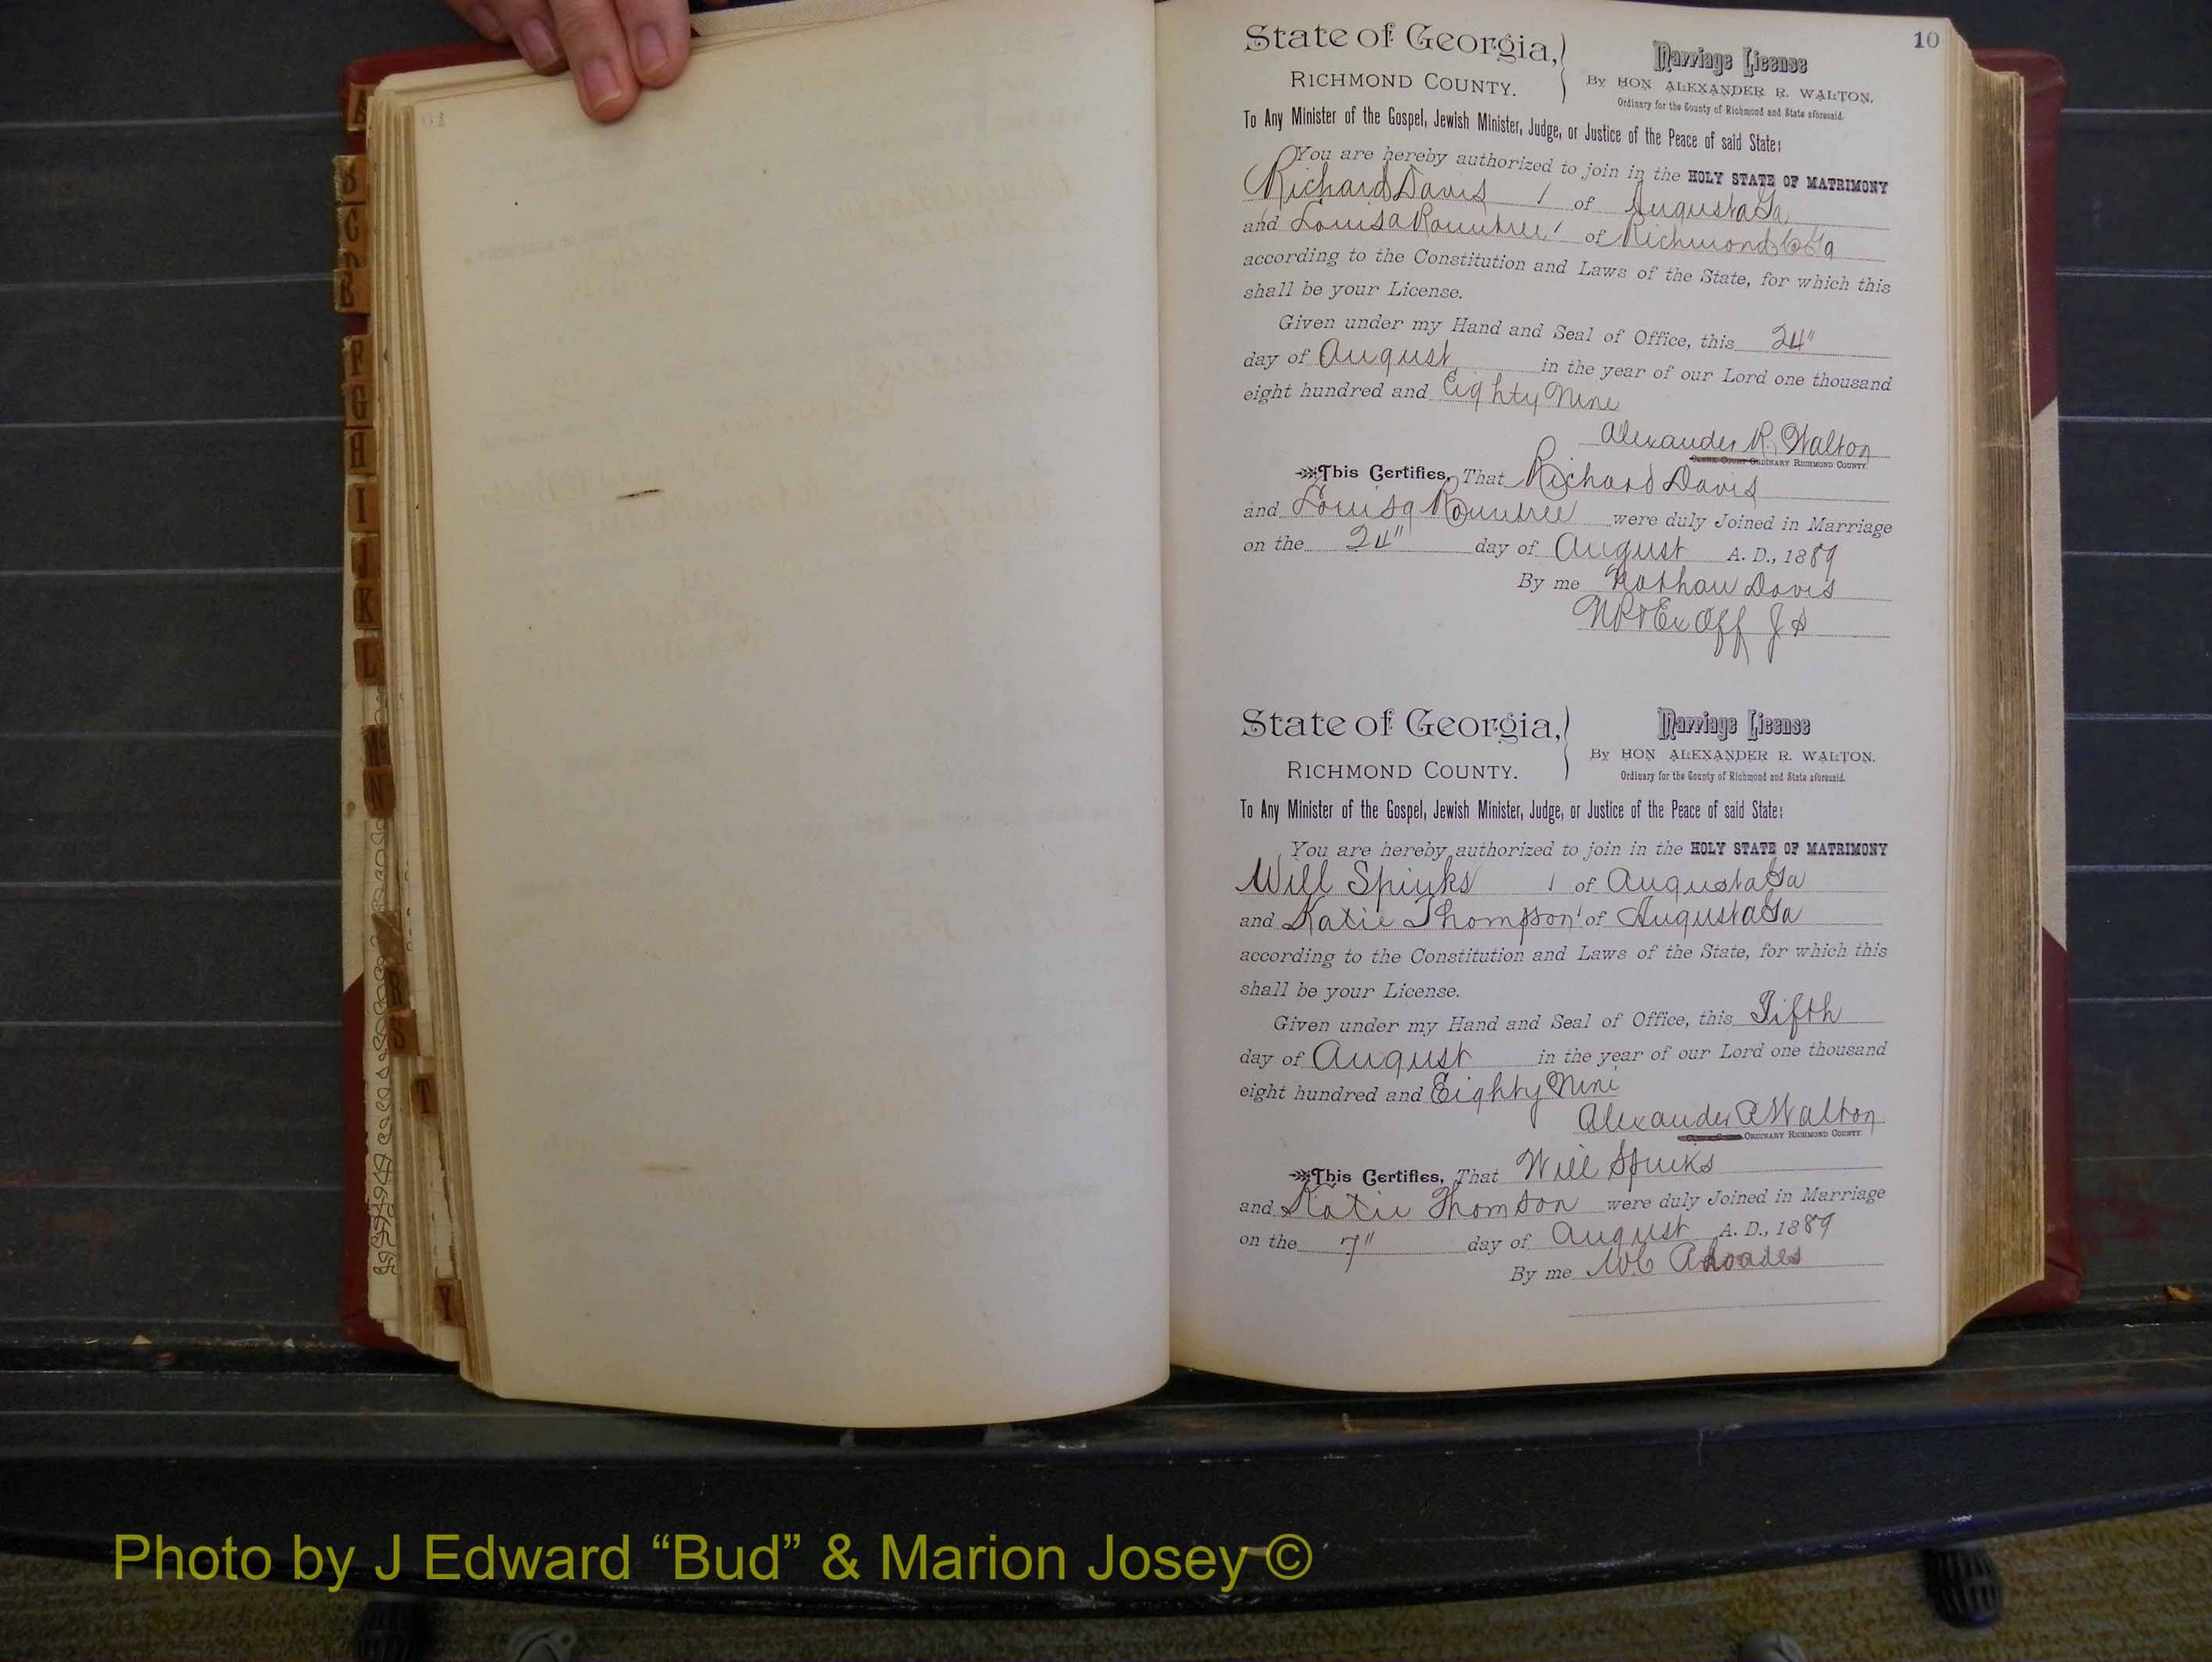 10
State of Georgia,
RICHMOND COUNTY.
Marriage License
By HON ALEXANDER R. WALTON,
Ordinary for the County of Richmond and State aforesaid.
To Any Minister of the Gospel, Jewish Minister, Judge, or Justice of the Peace of said State:
You are hereby authorized to join in the HOLY STATE OF MATRIMONY
Richard Davis of Augusta Ga
and Louisa Rountree of Richmond Co Ga
according to the Constitution and Laws of the State, for which this
shall be your License.
Given under my Hand and Seal of Office, this 24"
day of August in the year of our Lord one thousand
eight hundred and Eighty Nine
Alexander R. Walton
ORDINARY RICHMOND COUNTY.
This Certifies, That Richard Davis
and Louisa Rountree were duly Joined in Marriage
on the 24" day of August A. D., 1889
By me Nathan Davis
NP & Ex Off J P
State of Georgia,
RICHMOND COUNTY.
Marriage License
By HON ALEXANDER R. WALTON.
Ordinary for the County of Richmond and State aforesaid.
To Any Minister of the Gospel, Jewish Minister, Judge, or Justice of the Peace of said State:
You are hereby authorized to join in the HOLY STATE OF MATRIMONY
Will Spinks of Augusta Ga
and Katie Thompson of Augusta Ga
according to the Constitution and Laws of the State, for which this
shall be your License.
Given under my Hand and Seal of Office, this Fifth
day of August in the year of our Lord one thousand
eight hundred and Eighty Nine
Alexander R Walton
ORDINARY RICHMOND COUNTY.
This Certifies, That Will Spinks
and Katie Thomson were duly Joined in Marriage
on the 7" day of August A. D., 1889
By me WC Rhoades
A
B
C
D
E
F
G
H
I
J
K
L
M
N
R
S
T
Y
Photo by J Edward “Bud” & Marion Josey ©